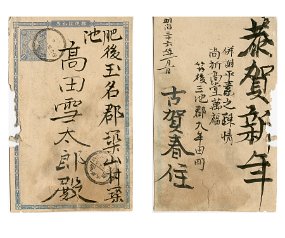 肥後玉名郡梁山村深
池
高田雪太郎殿
恭賀新年
併謝平素之疎情
尚祈高堂萬福
明治三十六年一月一日
筑後三池郡大牟田町
古賀春住